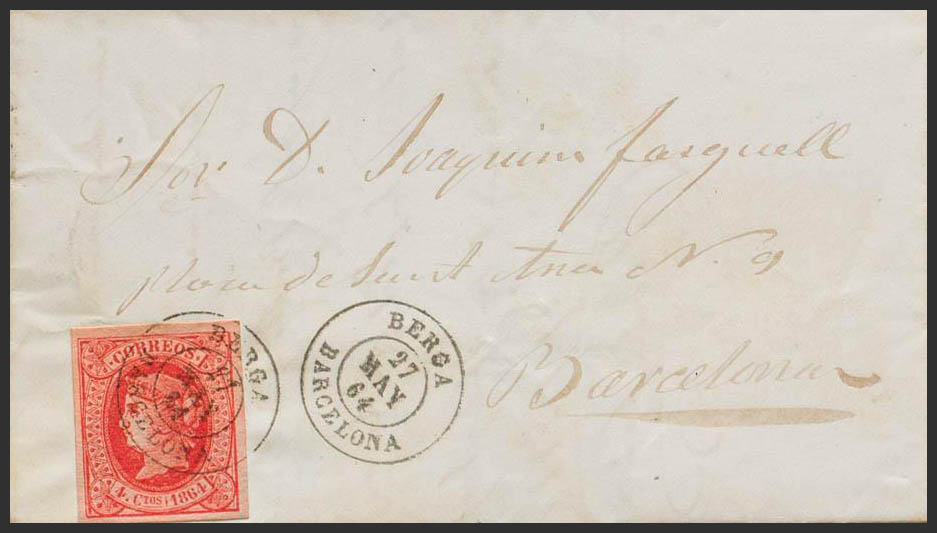 Sor. D. Joaquim farguell
plasa de Sant Ana N. 9
Barcelona
CORREOS
4. CTOS 1864
BERGA
27
MAY
64
BARCELONA
BERGA
27
BARCELONA